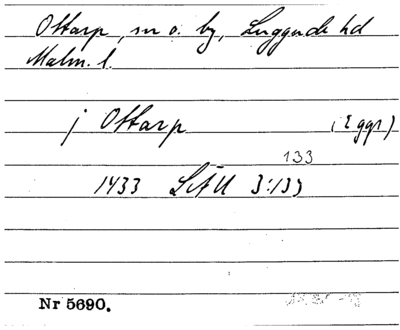 Ottarp, sn o. by, Luggude hd
Malm. l.
j Ottarp (Eggr)
133
1433 LÄU 3:133
Nr 5690.